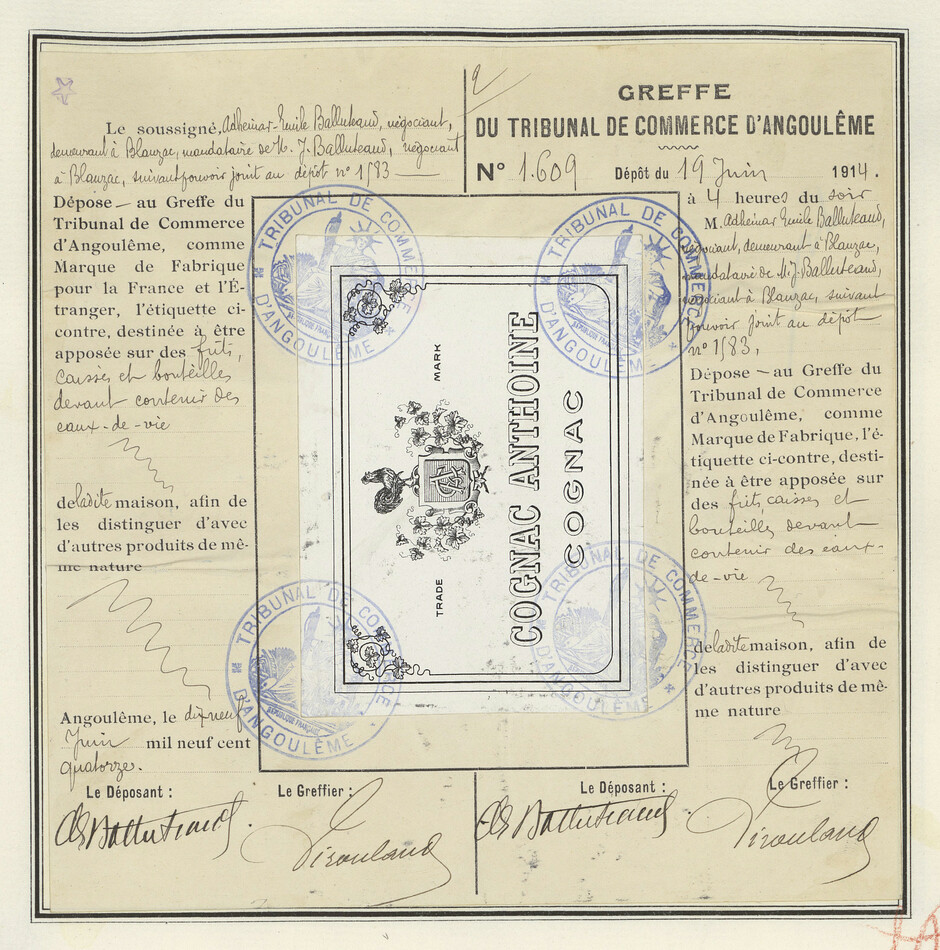 Le soussigné, Adhémar-Emile Balluteaud, négociant,
demeurant à Blanzac, mandataire de M. J. Balluteaud, négociant
à Blanzac, suivant pouvoir joint au dépôt n° 1583
Dépose — au Greffe du
Tribunal de Commerce
d'Angoulême, comme
Marque de Fabrique
pour la France et l'É-
tranger, l'étiquette ci-
contre, destinée à être
apposée sur des fûts,
caisses et bouteilles
devant contenir des
eaux-de-vie
de ladite maison, afin de
les distinguer d'avec
d'autres produits de mê-
me nature
Angoulême, le dix neuf
Juin mil neuf cent
quatorze.
Le Déposant :
Le Greffier :
AEBalluteaud
TRIBUNAL DE COMMERCE
D'ANGOULÊME
RÉPUBLIQUE FRANÇAISE
TRIBUNAL DE COMMERCE
D'ANGOULÊME
TRADE MARK
COGNAC ANTHOINE
COGNAC
TRIBUNAL DE COMMERCE
D'ANGOULÊME
RÉPUBLIQUE FRANÇAISE
TRIBUNAL DE COMMERCE
D'ANGOULÊME
2
GREFFE
DU TRIBUNAL DE COMMERCE D'ANGOULÊME
N° 1.609 Dépôt du 19 Juin 1914.
à 4 heures du soir
M. Adhémar Emile Balluteaud,
négociant, demeurant à Blanzac,
mandataire de M. J. Balluteaud,
négociant à Blanzac, suivant
pouvoir joint au dépôt
n° 1583,
Dépose — au Greffe du
Tribunal de Commerce
d'Angoulême, comme
Marque de Fabrique, l'é-
tiquette ci-contre, desti-
née à être apposée sur
des fûts, caisses et
bouteilles devant
contenir des eaux-
de-vie
de ladite maison, afin de
les distinguer d'avec
d'autres produits de mê-
me nature
Le Déposant :
Le Greffier :
AEBalluteaud